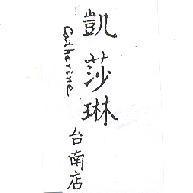 凱莎琳
Catherine
台南店